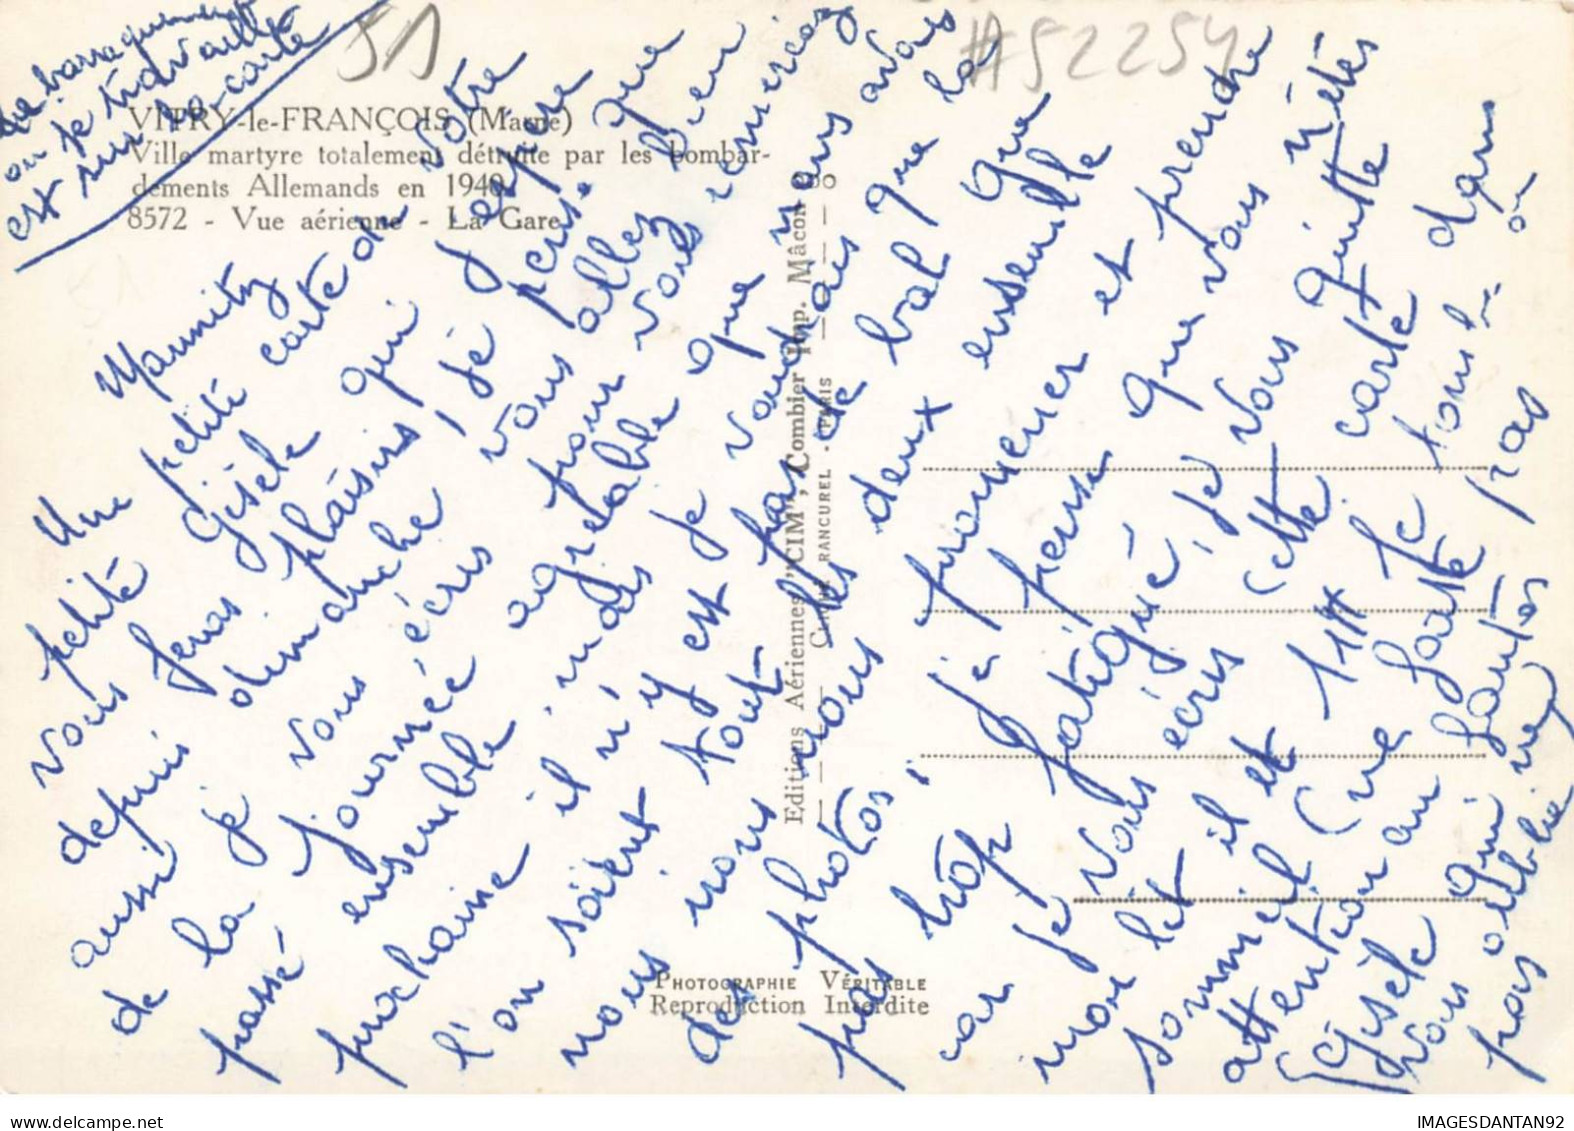 le barraquement
ou je travaille
est sur la carte
51
#52254
VITRY-le-FRANÇOIS (Marne)
Ville martyre totalement détruite par les bombar-
dements Allemands en 1940
8572 - Vue aérienne - La Gare
Editions Aériennes "CIM", Combier Imp. Mâcon
RANCUREL - PARIS
PHOTOGRAPHIE VÉRITABLE
Reproduction Interdite
Mannitz
Une petite carte de votre
petite Gisèle qui j'espère
vous feras plaisirs, je pense que
depuis dimanche vous allez bien
aussi je vous écris pour vous remerciez
de la journée agréable que nous avons
passé ensemble, mais je voudrais que la
prochaine il n'y est pas de bal que
l'on soient tout les deux ensemble
nous irons nous promener et prendre
des photos, je pense que vous n'êtes
pas trop fatigué, je vous quitte
car je vous écris cette carte dans
mon lit il et 11H je tombe de
sommeil (ne faite pas
attention au fautes
Gisèle qui
vous oublie
pas
IMAGESDANTAN92